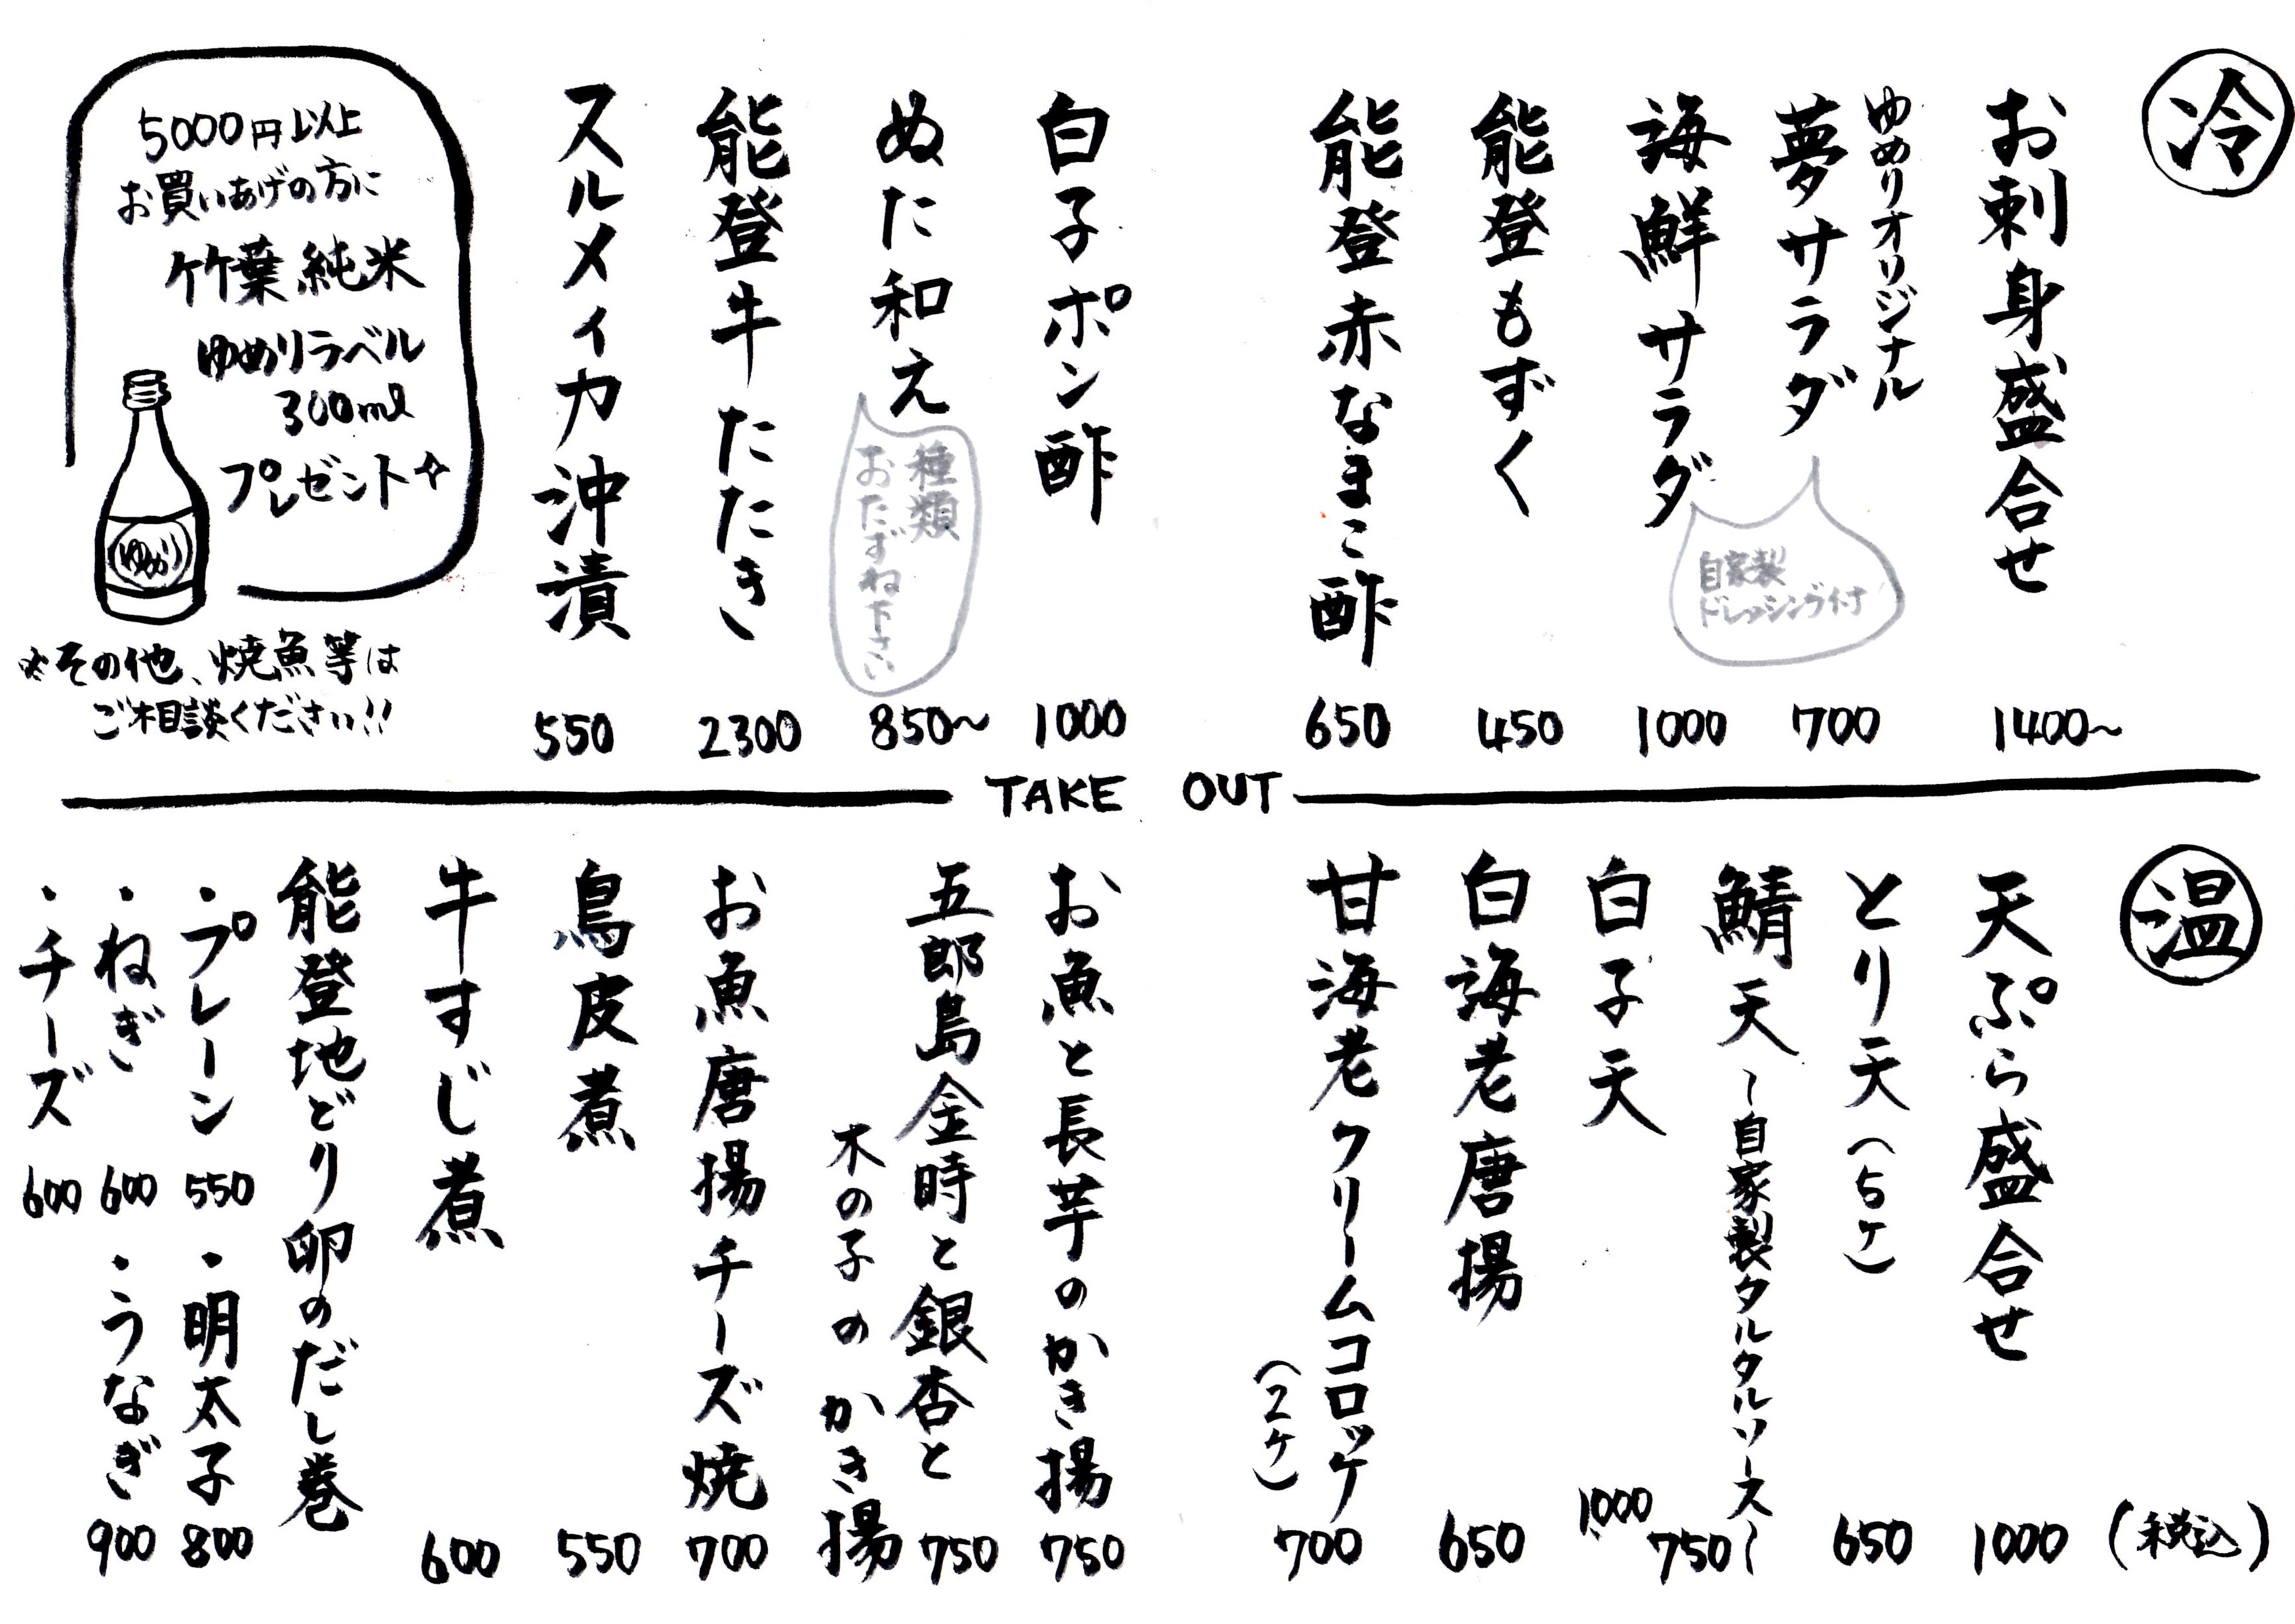 冷
お刺身盛合せ
1400~
ゆめりオリジナル
夢サラダ
700
海鮮サラダ
1000
自家製
ドレッシング付
能登もずく
450
能登赤なまこ酢
650
白子ポン酢
1000
ぬた和え
850~
種類
おたずね下さい
能登牛たたき
2300
スルメイカ沖漬
550
5000円以上
お買いあげの方に
竹葉純米
ゆめりラベル
300ml
プレゼント
ゆめり
※その他、焼魚等は
ご相談ください!!
TAKE OUT
温
(税込)
天ぷら盛合せ
1000
とり天(5ケ)
650
鯖天~自家製タルタルソース~
750
白子天
1000
白海老唐揚
650
甘海老クリームコロッケ
(2ケ)
700
お魚と長芋のかき揚
750
五郎島金時と銀杏と
木の子のかき揚
750
お魚唐揚チーズ焼
700
鳥皮煮
550
牛すじ煮
600
能登地どり卵のだし巻
・プレーン 550
・明太子 800
・ねぎ 600
・うなぎ 900
・チーズ 600